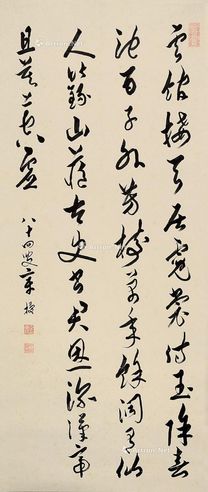 雲館接天居霓裳侍玉除春
池百子外芳樹萬年餘洞有仙
人籙山藏太史書君恩深漢帝
且莫上空虛
八十四叟章授